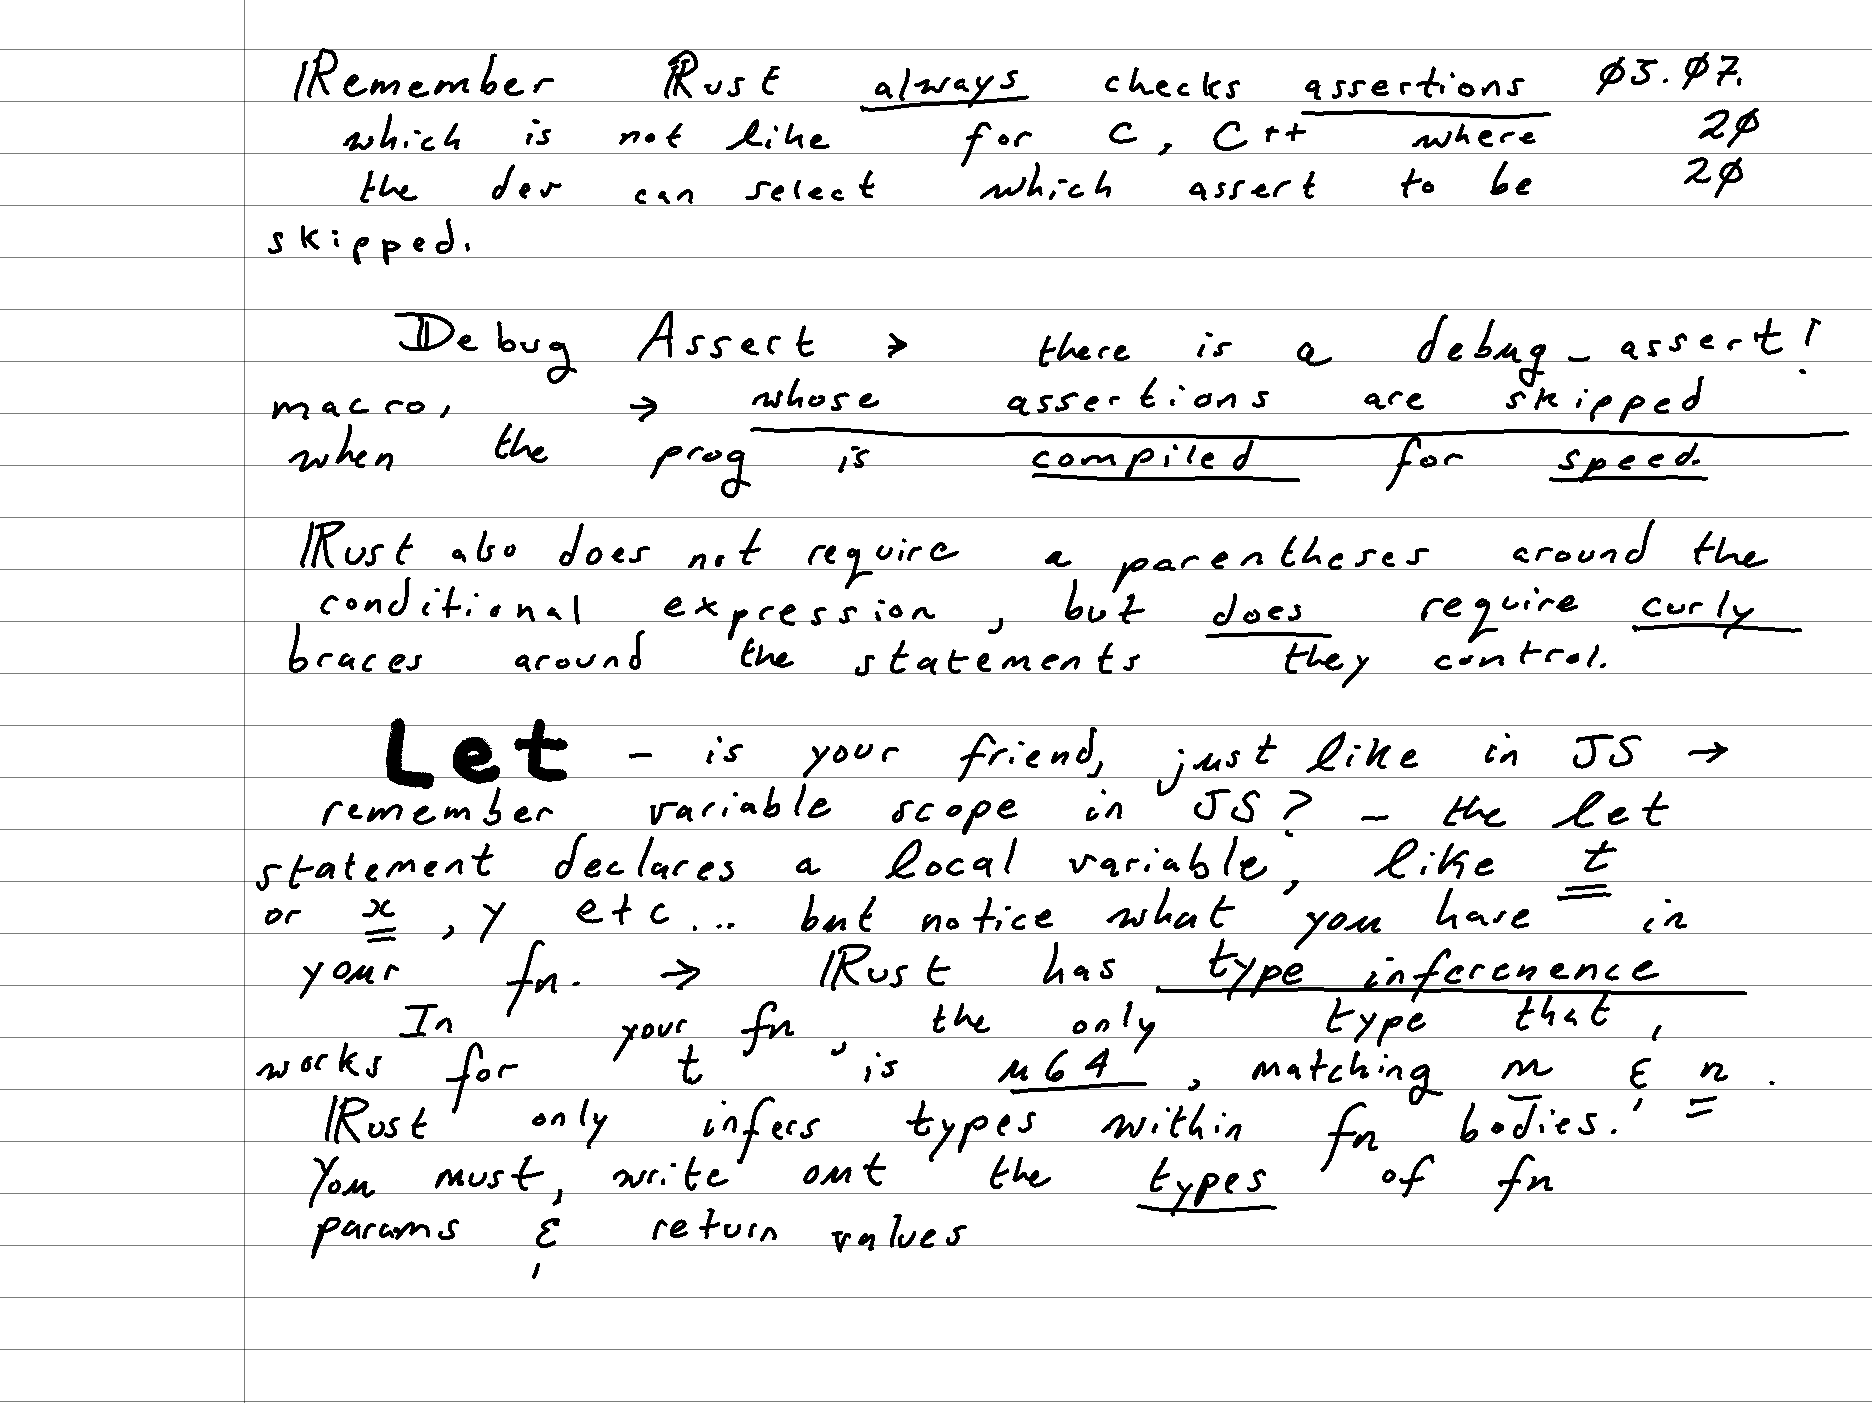 Remember Rust always checks assertions Ø5.Ø7.
which is not like for C, C++ where 2Ø
the dev can select which assert to be 2Ø
skipped.
Debug Assert → there is a debug_assert!
macro, → whose assertions are skipped
when the prog is compiled for speed.
Rust also does not require a parentheses around the
conditional expression, but does require curly
braces around the statements they control.
Let - is your friend, just like in JS →
remember variable scope in JS? - the let
statement declares a local variable, like t
or x, y etc... but notice what you have in
your fn. → Rust has type inferenence
In your fn, the only type that,
works for t is u64, matching m & n.
Rust only infers types within fn bodies.
You must, write out the types of fn
params & return values